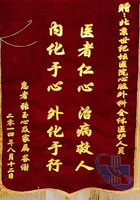 赠:北京世纪坛医院心脏外科全体医护人员
医者仁心 治病救人
内化于心 外化于行
患者 张玉心及家属 敬谢
二零一四年八月十二日